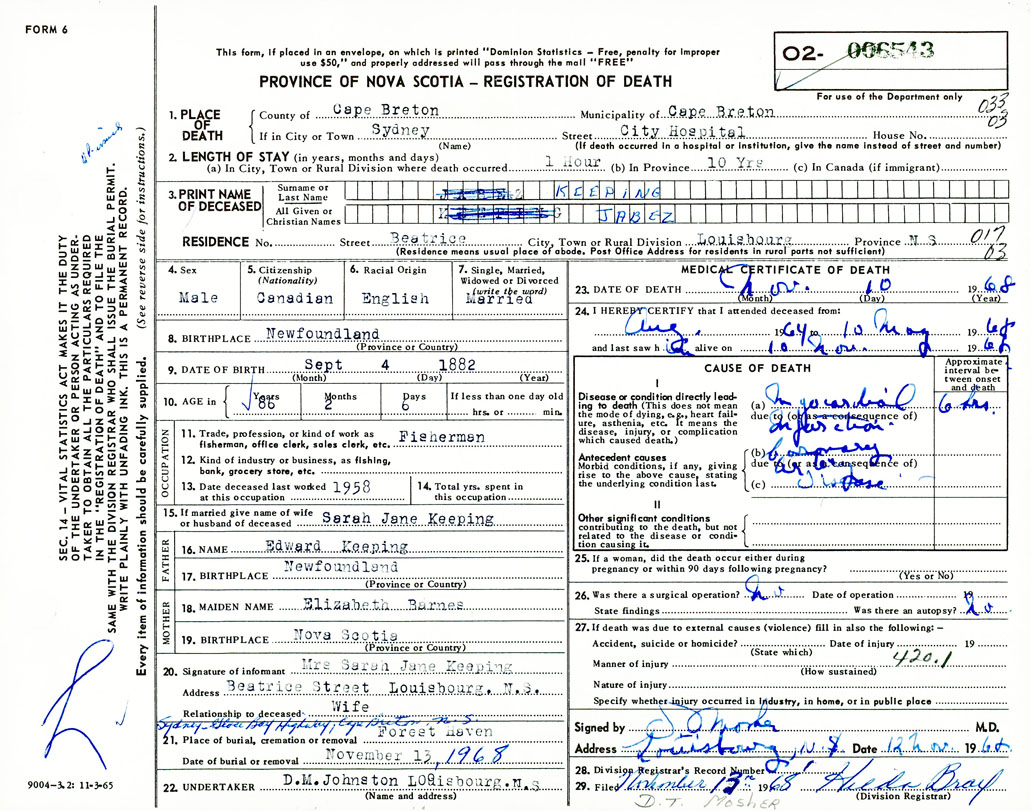 FORM 6
02- 006543
This form, if placed in an envelope, on which is printed "Dominion Statistics – Free, penalty for improper
use $50," and properly addressed will pass through the mail "FREE"
PROVINCE OF NOVA SCOTIA – REGISTRATION OF DEATH
For use of the Department only
033
03
1. PLACE OF DEATH
County of Cape Breton Municipality of Cape Breton
If in City or Town Sydney Street City Hospital House No.
(Name) (If death occurred in a hospital or institution, give the name instead of street and number)
2. LENGTH OF STAY (in years, months and days)
(a) In City, Town or Rural Division where death occurred 1 Hour (b) In Province 10 Yrs (c) In Canada (if immigrant)
3. PRINT NAME OF DECEASED
Surname or Last Name KEEPING
All Given or Christian Names JABEZ
RESIDENCE No. Street Beatrice City, Town or Rural Division Louisbourg Province N S
017
03
(Residence means usual place of abode. Post Office Address for residents in rural parts not sufficient)
4. Sex
Male
5. Citizenship
(Nationality)
Canadian
6. Racial Origin
English
7. Single, Married,
Widowed or Divorced
(write the word)
Married
8. BIRTHPLACE Newfoundland
(Province or Country)
9. DATE OF BIRTH Sept 4 1882
(Month) (Day) (Year)
10. AGE in Years Months Days If less than one day old
86 2 6 hrs. or min.
OCCUPATION
11. Trade, profession, or kind of work as
fisherman, office clerk, sales clerk, etc. Fisherman
12. Kind of industry or business, as fishing,
bank, grocery store, etc.
13. Date deceased last worked
at this occupation 1958
14. Total yrs. spent in
this occupation
15. If married give name of wife
or husband of deceased Sarah Jane Keeping
FATHER
16. NAME Edward Keeping
17. BIRTHPLACE Newfoundland
(Province or Country)
MOTHER
18. MAIDEN NAME Elizabeth Barnes
19. BIRTHPLACE Nova Scotia
(Province or Country)
20. Signature of informant Mrs Sarah Jane Keeping
Address Beatrice Street Louisbourg, N.S.
Relationship to deceased Wife
Sydney-Glace Bay Highway, Cape Breton, N.S.
21. Place of burial, cremation or removal Forest Haven
Date of burial or removal November 13, 1968
22. UNDERTAKER D.M.Johnston Louisbourg.N.S
(Name and address)
MEDICAL CERTIFICATE OF DEATH
23. DATE OF DEATH Nov. 10 1968
(Month) (Day) (Year)
24. I HEREBY CERTIFY that I attended deceased from:
Aug. 1964 to 10 Nov 1968
and last saw him alive on 10 Nov. 1968
CAUSE OF DEATH
Approximate
interval be-
tween onset
and death
I
Disease or condition directly lead-
ing to death (This does not mean
the mode of dying, e.g., heart fail-
ure, asthenia, etc. It means the
disease, injury, or complication
which caused death.)
(a) Myocardial 6 hrs.
due to (or as a consequence of)
infarction.
Antecedent causes
Morbid conditions, if any, giving
rise to the above cause, stating
the underlying condition last.
(b) Coronary
due to (or as a consequence of)
artery
(c) Disease
II
Other significant conditions
contributing to the death, but not
related to the disease or condi-
tion causing it.
25. If a woman, did the death occur either during
pregnancy or within 90 days following pregnancy?
(Yes or No)
26. Was there a surgical operation? No Date of operation 19
State findings Was there an autopsy? No
27. If death was due to external causes (violence) fill in also the following: –
Accident, suicide or homicide? Date of injury 19
(State which)
420.1
Manner of injury
(How sustained)
Nature of injury
Specify whether injury occurred in Industry, in home, or in public place
Signed by D. T. Mosher M.D.
Address Louisbourg, N.S. Date 12 Nov. 1968
28. Division Registrar's Record Number
29. Filed November 13th 1968 Hilda Bray
(Division Registrar)
D.T. MOSHER
SEC. 14 – VITAL STATISTICS ACT MAKES IT THE DUTY
OF THE UNDERTAKER OR PERSON ACTING AS UNDER-
TAKER TO OBTAIN ALL THE PARTICULARS REQUIRED
IN THE "REGISTRATION OF DEATH" AND TO FILE THE
SAME WITH THE DIVISION REGISTRAR WHO SHALL ISSUE THE BURIAL PERMIT.
WRITE PLAINLY WITH UNFADING INK. THIS IS A PERMANENT RECORD.
Every item of information should be carefully supplied. (See reverse side for instructions.)
9004-3.2: 11-3-65